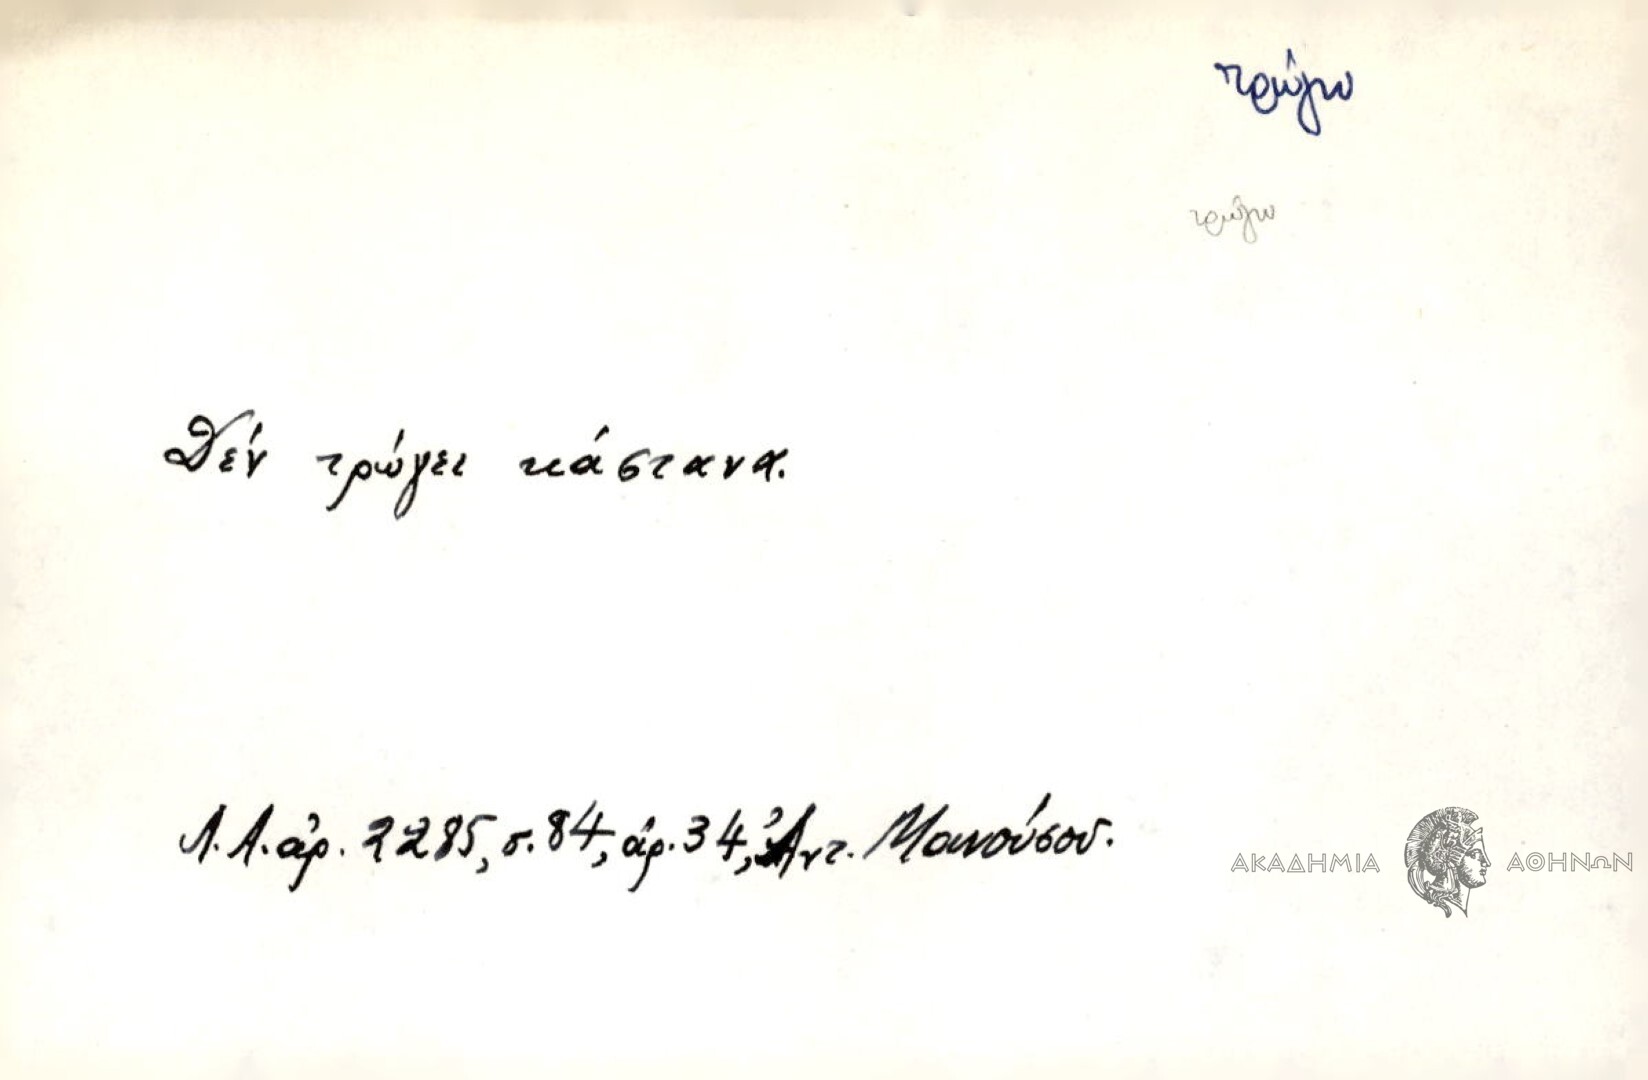 τρώγω
τρώγω
Δέν τρώγει κάστανα.
Λ.Λ. ἀρ. 2285, σ. 84, ἀρ. 34, Ἀντ. Μανούσου.
ΑΚΑΔΗΜΙΑ ΑΘΗΝΩΝ